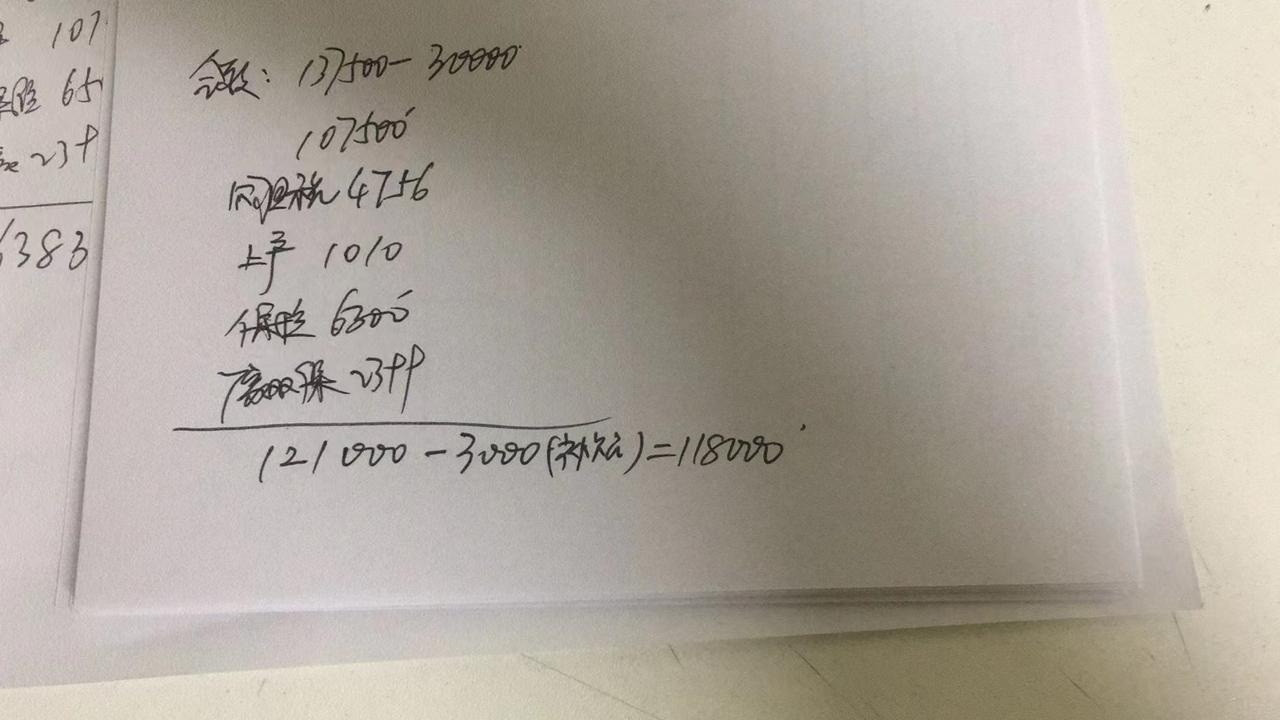 107
险 65
239
6383
全款: 137500-30000
107500
购置税 4756
上户 1010
保险 6300
2399
121000-3000(补贴)=118000